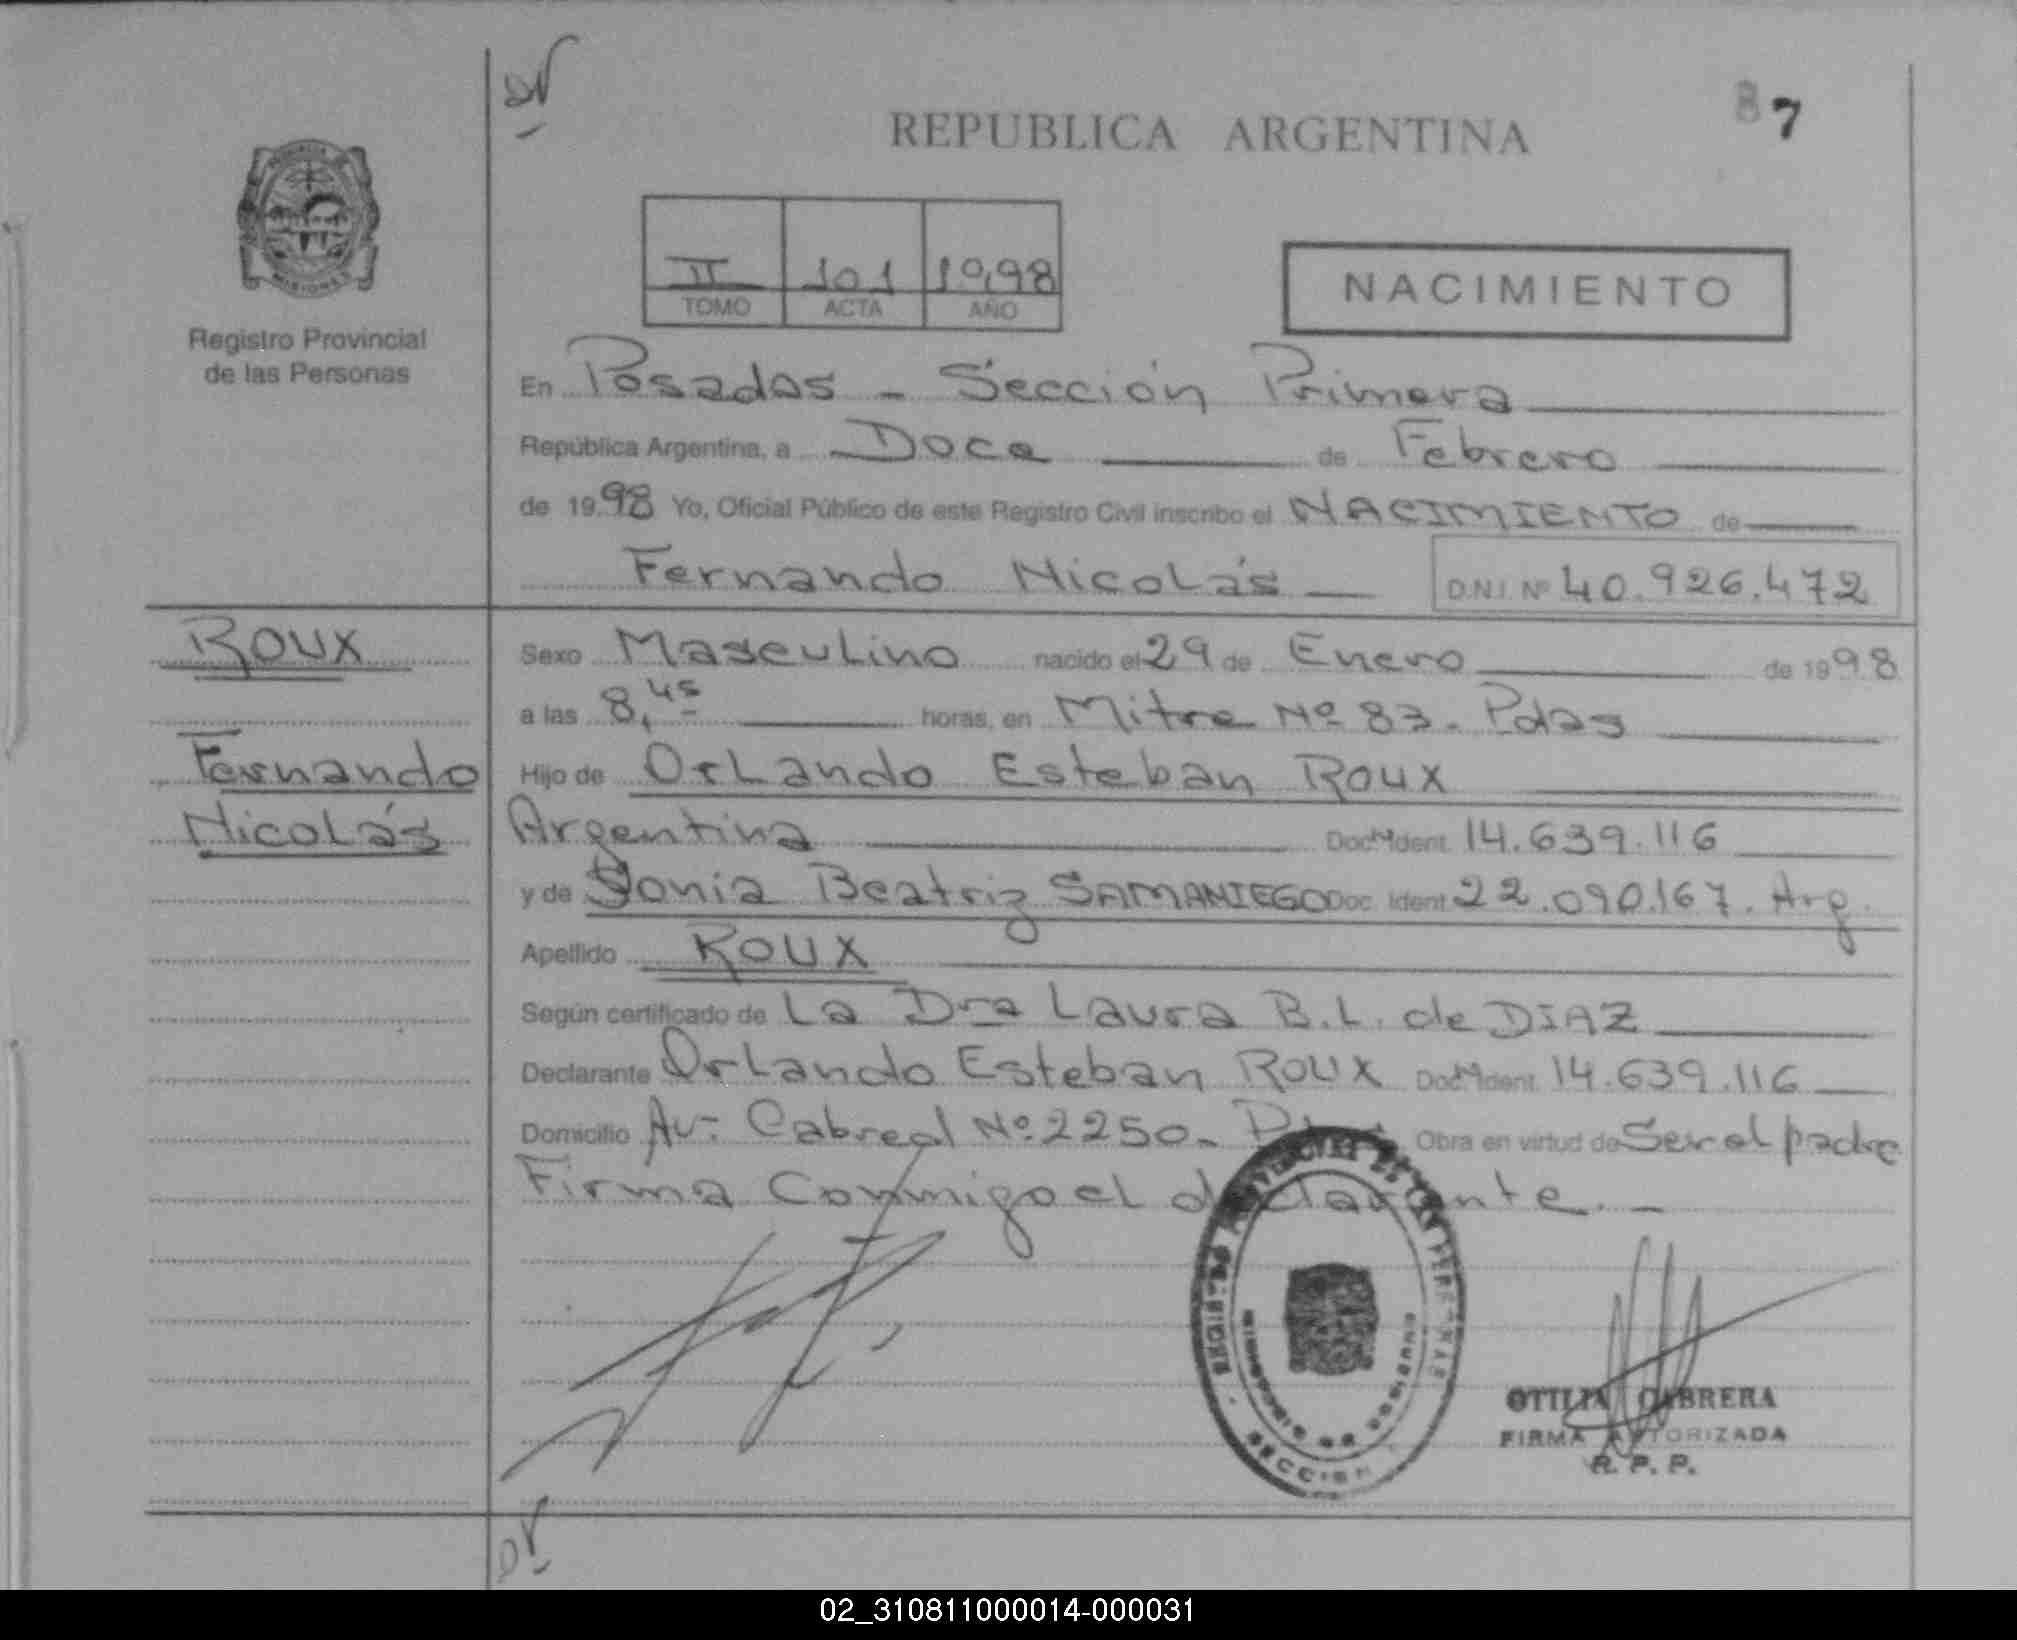 DV
REPUBLICA ARGENTINA
87
PROVINCIA DE
MISIONES
Registro Provincial
de las Personas
II 101 1998
TOMO ACTA AÑO
NACIMIENTO
En Posadas - Sección Primera
República Argentina, a Doce de Febrero
de 1998 Yo, Oficial Público de este Registro Civil inscribo el NACIMIENTO de
Fernando Nicolás D.N.I. Nº 40.926.472
ROUX
Sexo Masculino nacido el 29 de Enero de 1998
a las 8,45 horas, en Mitre Nº 83. Pdas
Fernando
Hijo de Orlando Esteban ROUX
Nicolás
Argentina Doc. Ident. 14.639.116
y de Sonia Beatriz SAMANIEGO Doc. Ident. 22.090.167. Arg.
Apellido ROUX
Según certificado de La Dra Laura B.L. de DIAZ
Declarante Orlando Esteban ROUX Doc. Ident. 14.639.116
Domicilio Av. Cabred Nº 2250. Obra en virtud de Ser el padre
Firma Conmigo el declarante. -
SECCION
OTILIA CABRERA
FIRMA AUTORIZADA
R. P. P.
DV
02_310811000014-000031